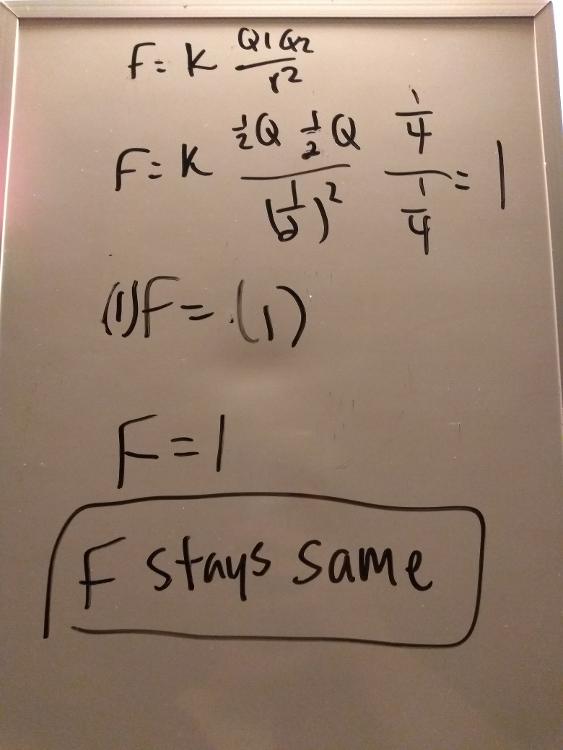 F = K Q1 Q2 / r²
F = K ½Q ½Q / (½)² ¼ / ¼ = 1
(1)F = (1)
F = 1
F stays same